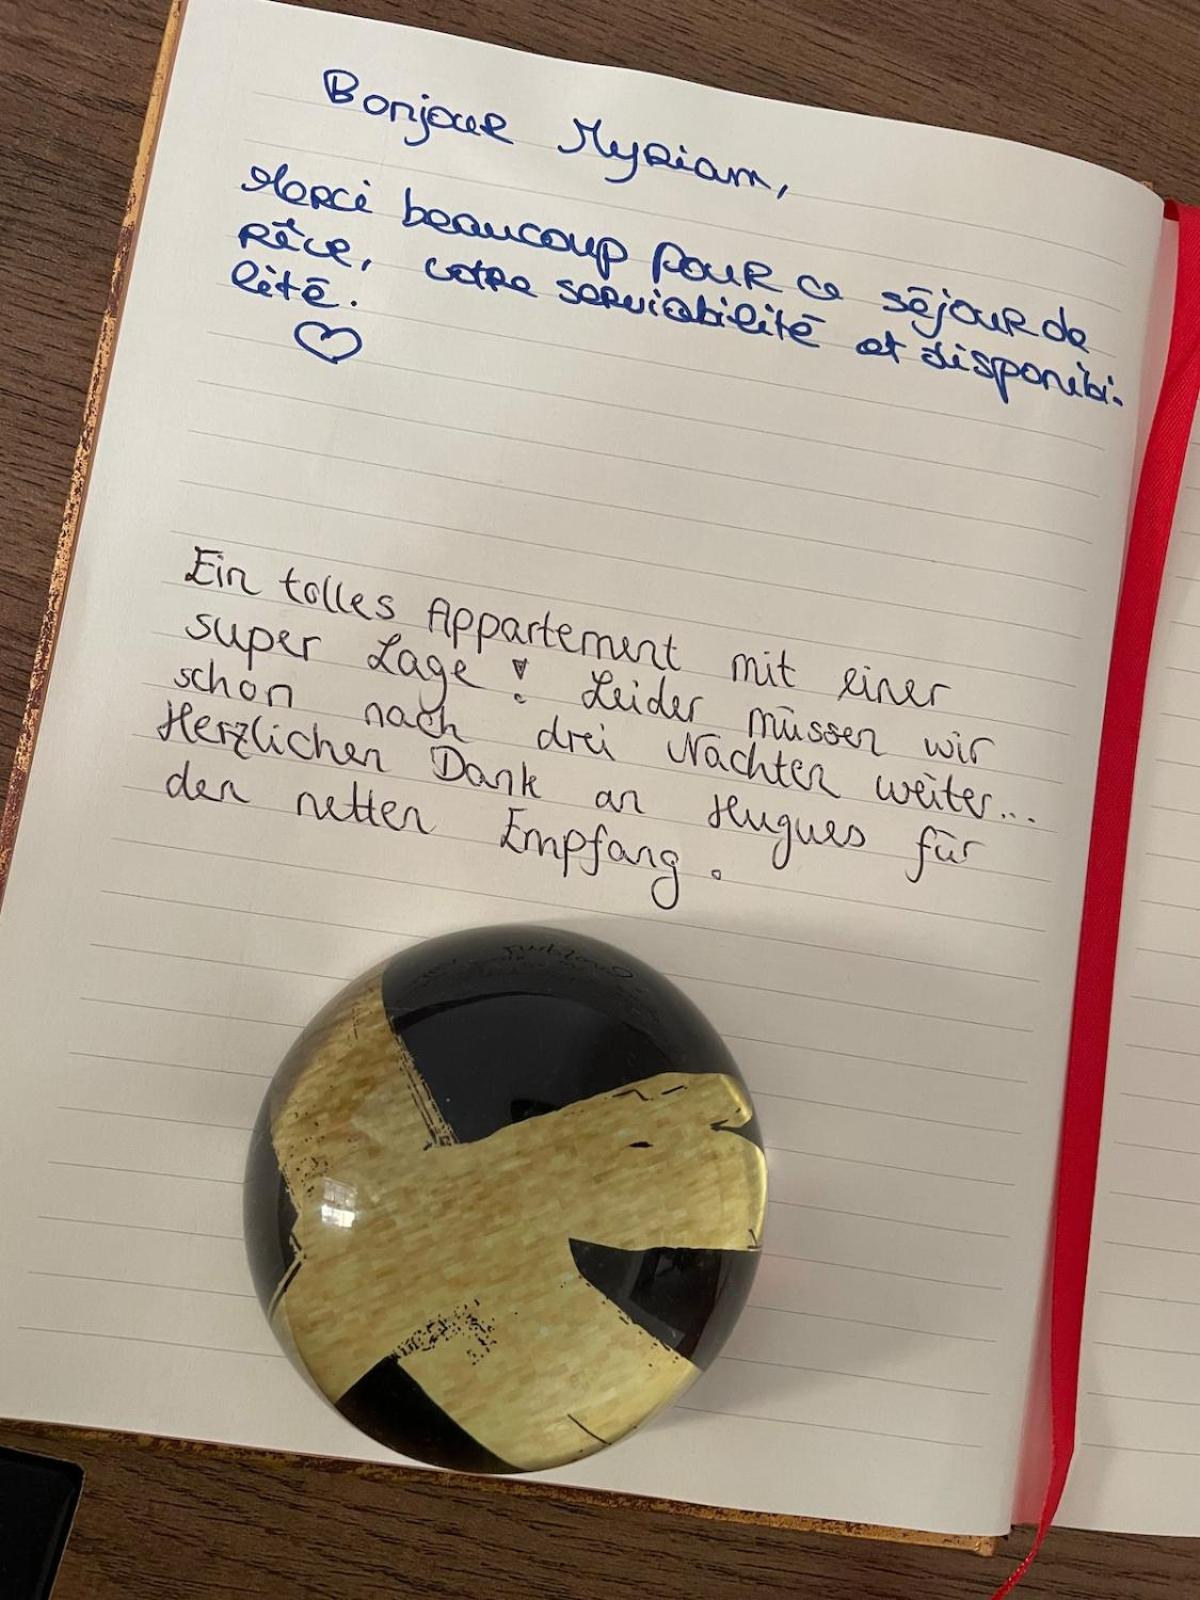 Bonjour Myriam,
Merci beaucoup pour ce séjour de
rêve, votre serviabilité et disponibi-
lité.
Ein tolles Appartement mit einer
super Lage! Leider müssen wir
schon nach drei Nächten weiter...
Herzlichen Dank an Hugues für
den netten Empfang.